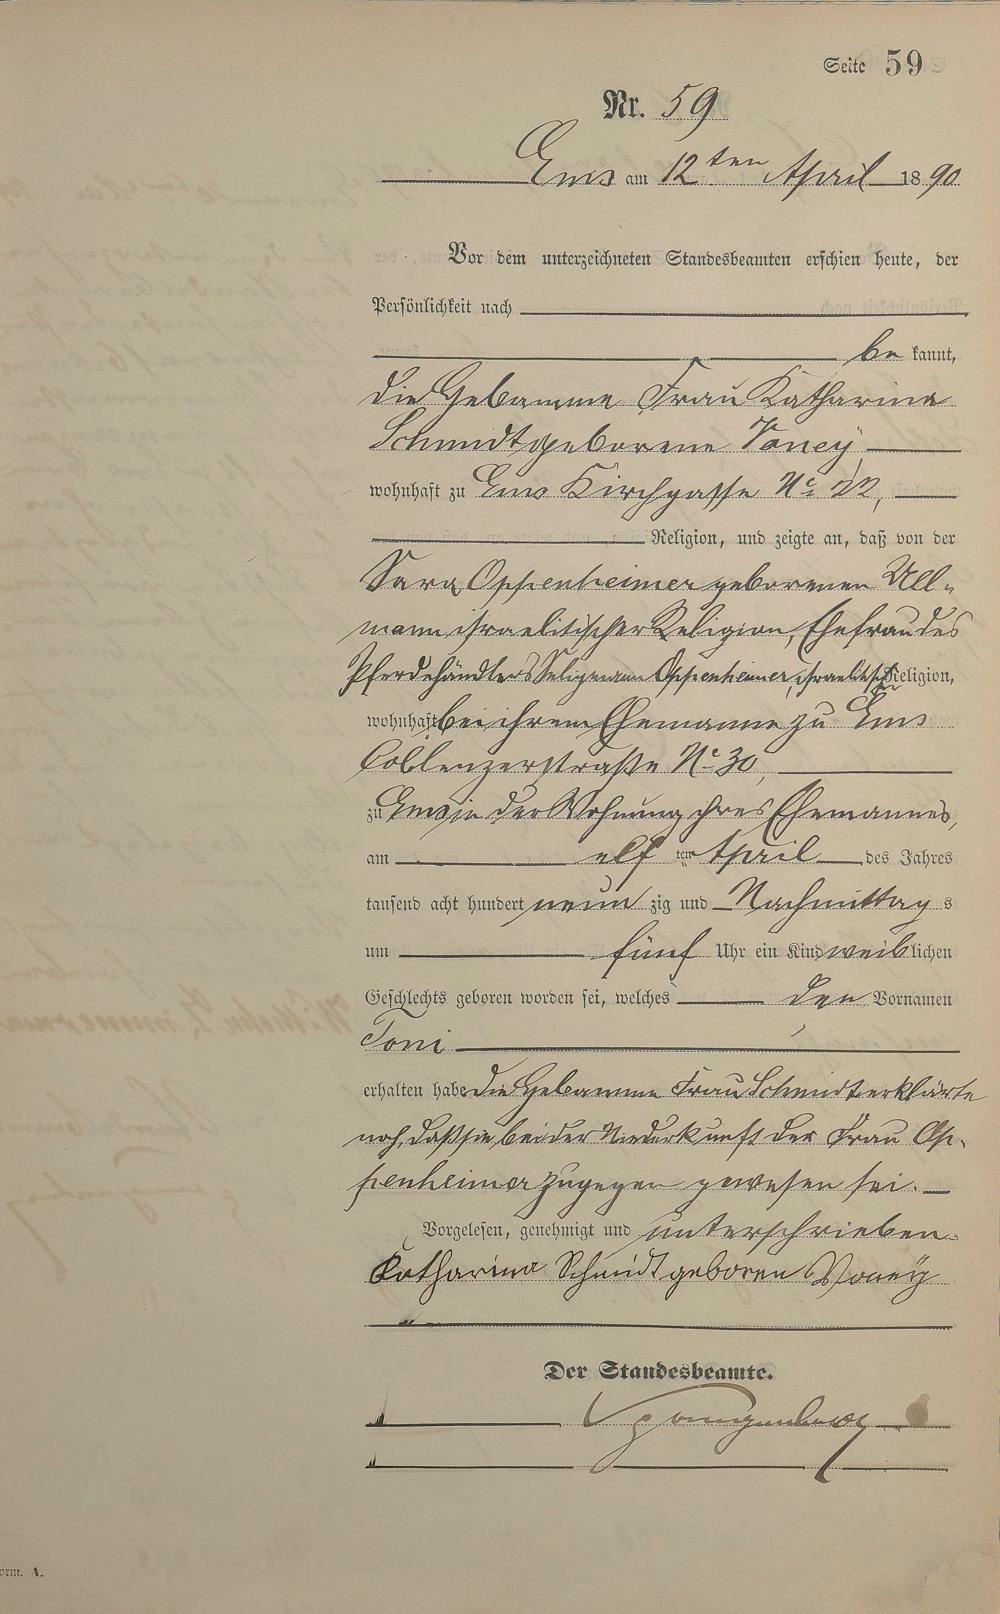 Seite 59
Nr. 59
Ems am 12ten April 1890
Vor dem unterzeichneten Standesbeamten erschien heute, der
Persönlichkeit nach
be kannt,
die Hebamme Frau Katharina
Schmidt geborene
wohnhaft zu Ems Kirchgasse No 22,
Religion, und zeigte an, daß von der
Sara Oppenheimer geborenen Ull-
mann israelitischer Religion, Ehefrau des
Pferdehändlers Seligmann Oppenheimer, israelitisch Religion,
wohnhaft bei ihrem Ehemanne zu Ems
Coblenzerstraße No 30,
zu Ems in der Wohnung ihres Ehemannes,
am elf ten April des Jahres
tausend acht hundert neun zig und Nachmittag s
um fünf Uhr ein Kind weiblichen
Geschlechts geboren worden sei, welches den Vornamen
Toni
erhalten habe die Hebamme Frau Schmidt erklärte
noch, daß sie bei der Niederkunft der Frau Op-
penheimer zugegen gewesen sei.
Vorgelesen, genehmigt und unterschrieben.
Katharina Schmidt geboren
Der Standesbeamte.
orm. A.